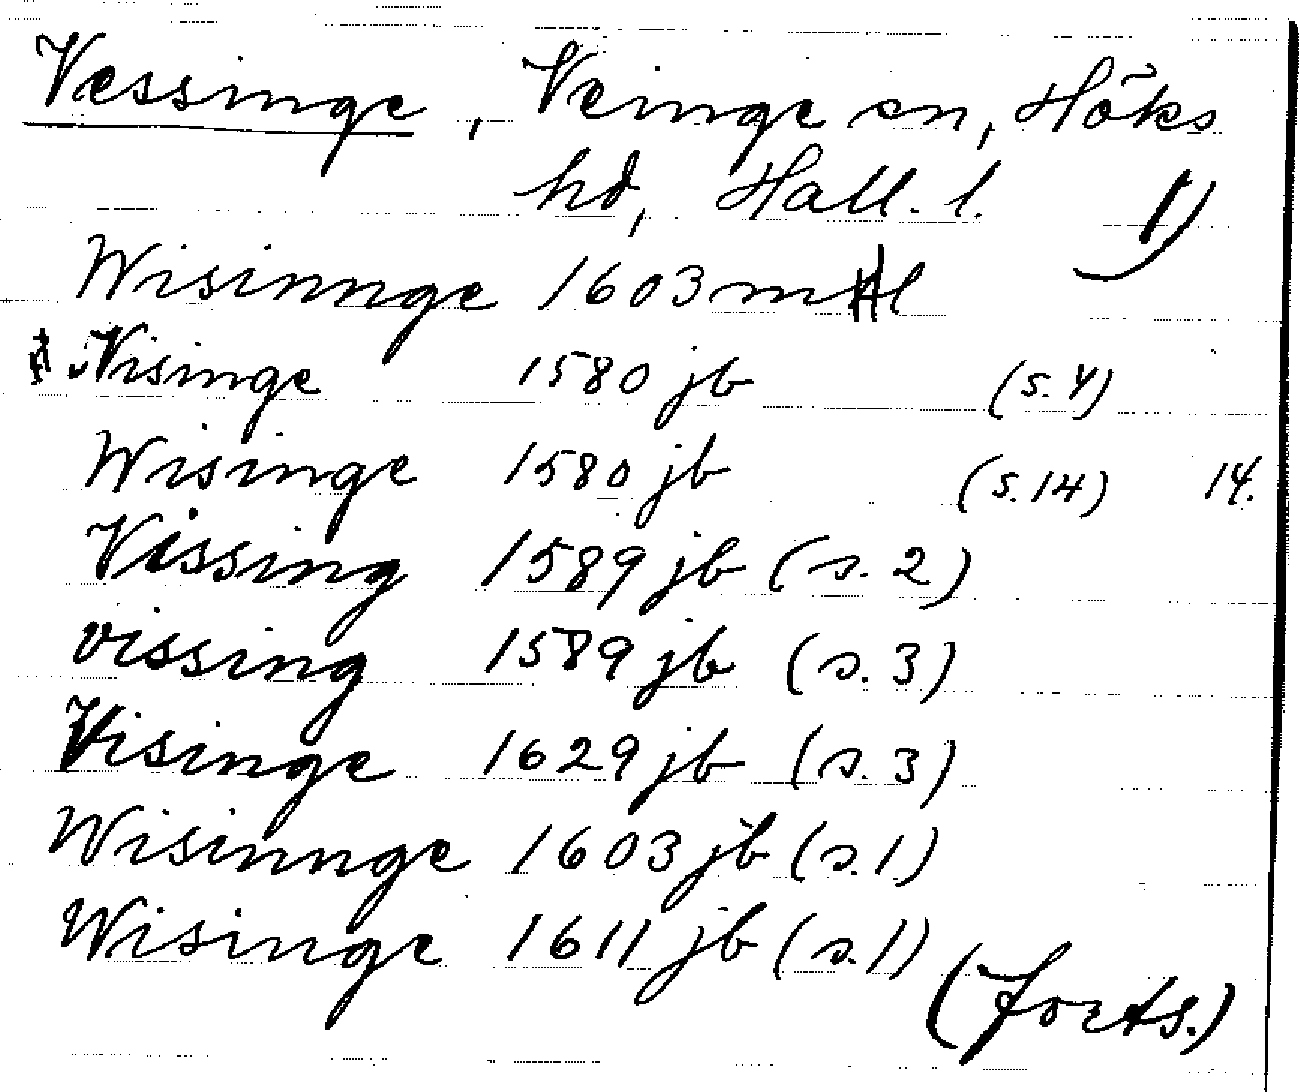 Vessinge, Veinge sn, Höks
hd, Hall. l. 1)
Wisinnge 1603 mtl
Visinge 1580 jb (s. 4)
Wisinge 1580 jb (s. 14) 14.
Vissing 1589 jb (s. 2)
vissing 1589 jb (s. 3)
Visinge 1629 jb (s. 3)
Wisinnge 1603 jb (s. 1)
Wisinge 1611 jb (s. 1)
(forts.)